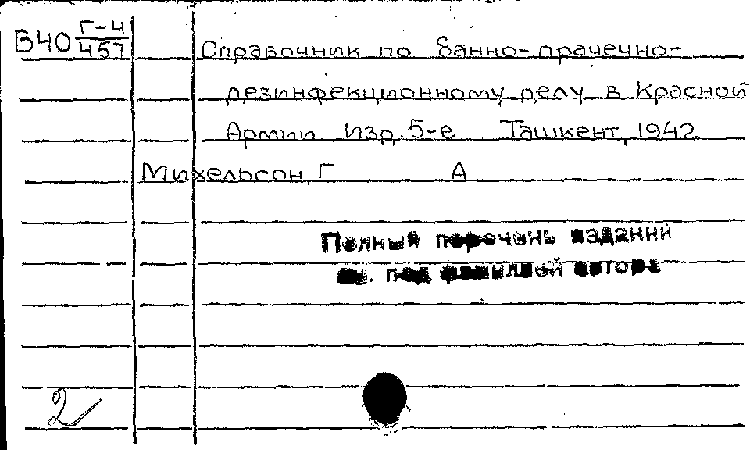 В40 Г-4/457
Справочник по банно-прачечно-
дезинфекционному делу в Красной
Армии Изд. 5-е Ташкент, 1942
Михельсон, Г А
Полный перечень изданий
см. под фамилией автора
2